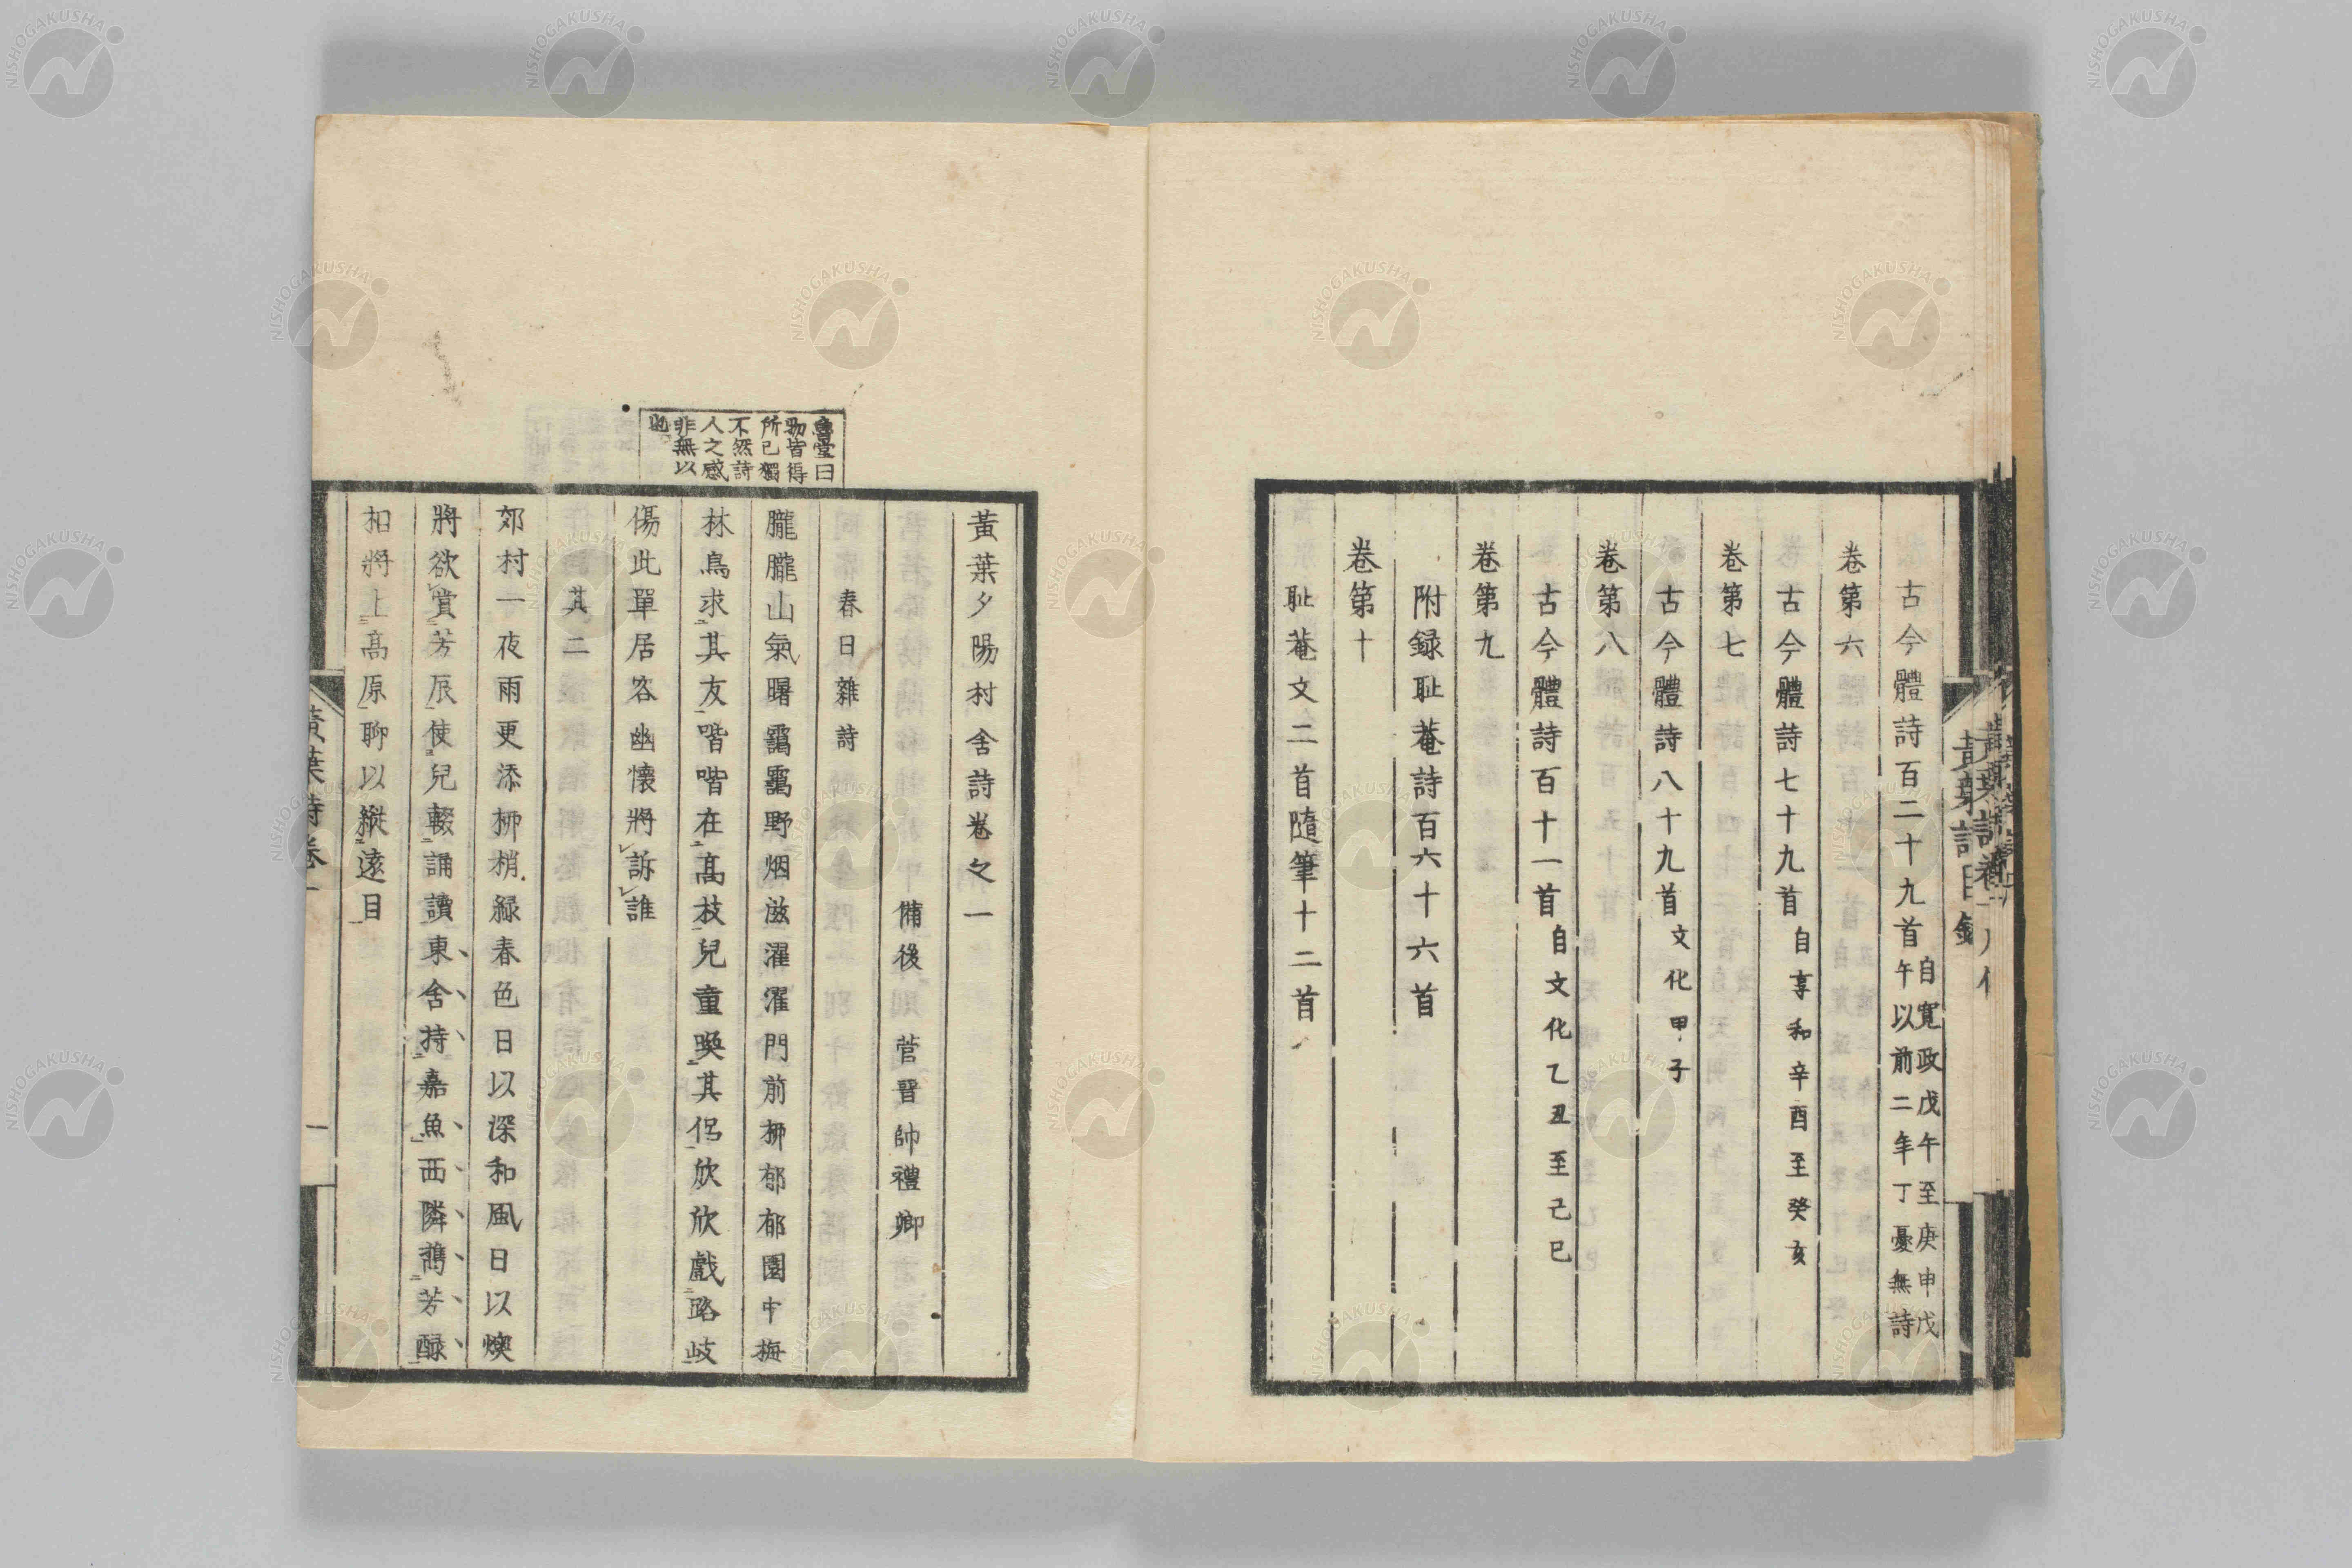 古今體詩百二十九首自寬政戊午至庚申戊午以前二年丁憂無詩
卷第六
古今體詩七十九首自享和辛酉至癸亥
卷第七
古今體詩八十九首文化甲子
卷第八
古今體詩百十一首自文化乙丑至己巳
卷第九
附録耻菴詩百六十六首
卷第十
耻菴文二首隨筆十二首
黃葉夕陽村舍詩卷之一
備後 菅晉帥禮卿
春日雜詩
朧朧山氣曙靄靄野烟滋濯濯門前柳郁郁園中梅
林鳥求其友喈喈在高枝兒童喚其侶欣欣戲路歧
傷此單居客幽懷將訴誰
其二
郊村一夜雨更添柳梢綠春色日以深和風日以燠
將欲賞芳辰使兒輟誦讀東舍持嘉魚西隣攜芳醁
相將上高原聊以縱遠目
魯堂曰
物皆得
所己獨
不然詩
人之感
非無以
也
黃葉詩卷一
一
NISHOGAKUSHA